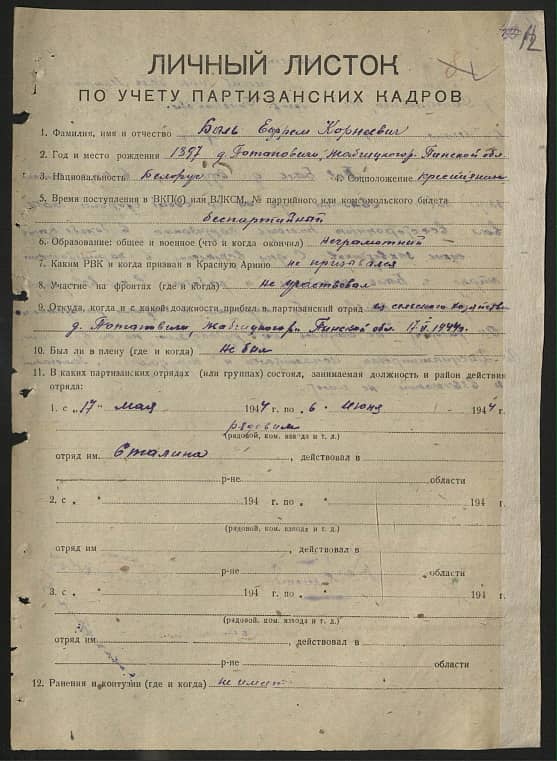 12
ЛИЧНЫЙ ЛИСТОК
ПО УЧЕТУ ПАРТИЗАНСКИХ КАДРОВ
1. Фамилия, имя и отчество Боль Ефрем Корнеевич
2. Год и место рождения 1897 д. Потаповичи, Жабчицкого р. Пинской обл
3. Национальность Белорус 4. Соцположение крестьянин
5. Время поступления в ВКП(б) или ВЛКСМ, № партийного или комсомольского билета
беспартийный
6. Образование: общее и военное (что и когда окончил) неграмотный
7. Каким РВК и когда призван в Красную Армию не призывался
8. Участие на фронтах (где и когда) не участвовал
9. Откуда, когда и с какой должности прибыл в партизанский отряд из сельского хозяйства
д. Потаповичи, Жабчицкого р. Пинской обл. 17.V.1944г.
10. Был ли в плену (где и когда) не был
11. В каких партизанских отрядах (или группах) состоял, занимаемая должность и район действия
отряда:
1. с „17" мая 1944 г. по „6" июня 1944 г.
рядовым
(рядовой, ком. взвода и т. д.)
отряд им. Сталина, действовал в
р-не области
2. с „ " 194 г. по „ " 194 г.
(рядовой, ком. взвода и т. д.)
отряд им , действовал в
р-не области
3. с „ " 194 г. по „ " 194 г.
(рядовой, ком. взвода и т. д.)
отряд им. , действовал в
р-не области
12. Ранения и контузии (где и когда) не имат